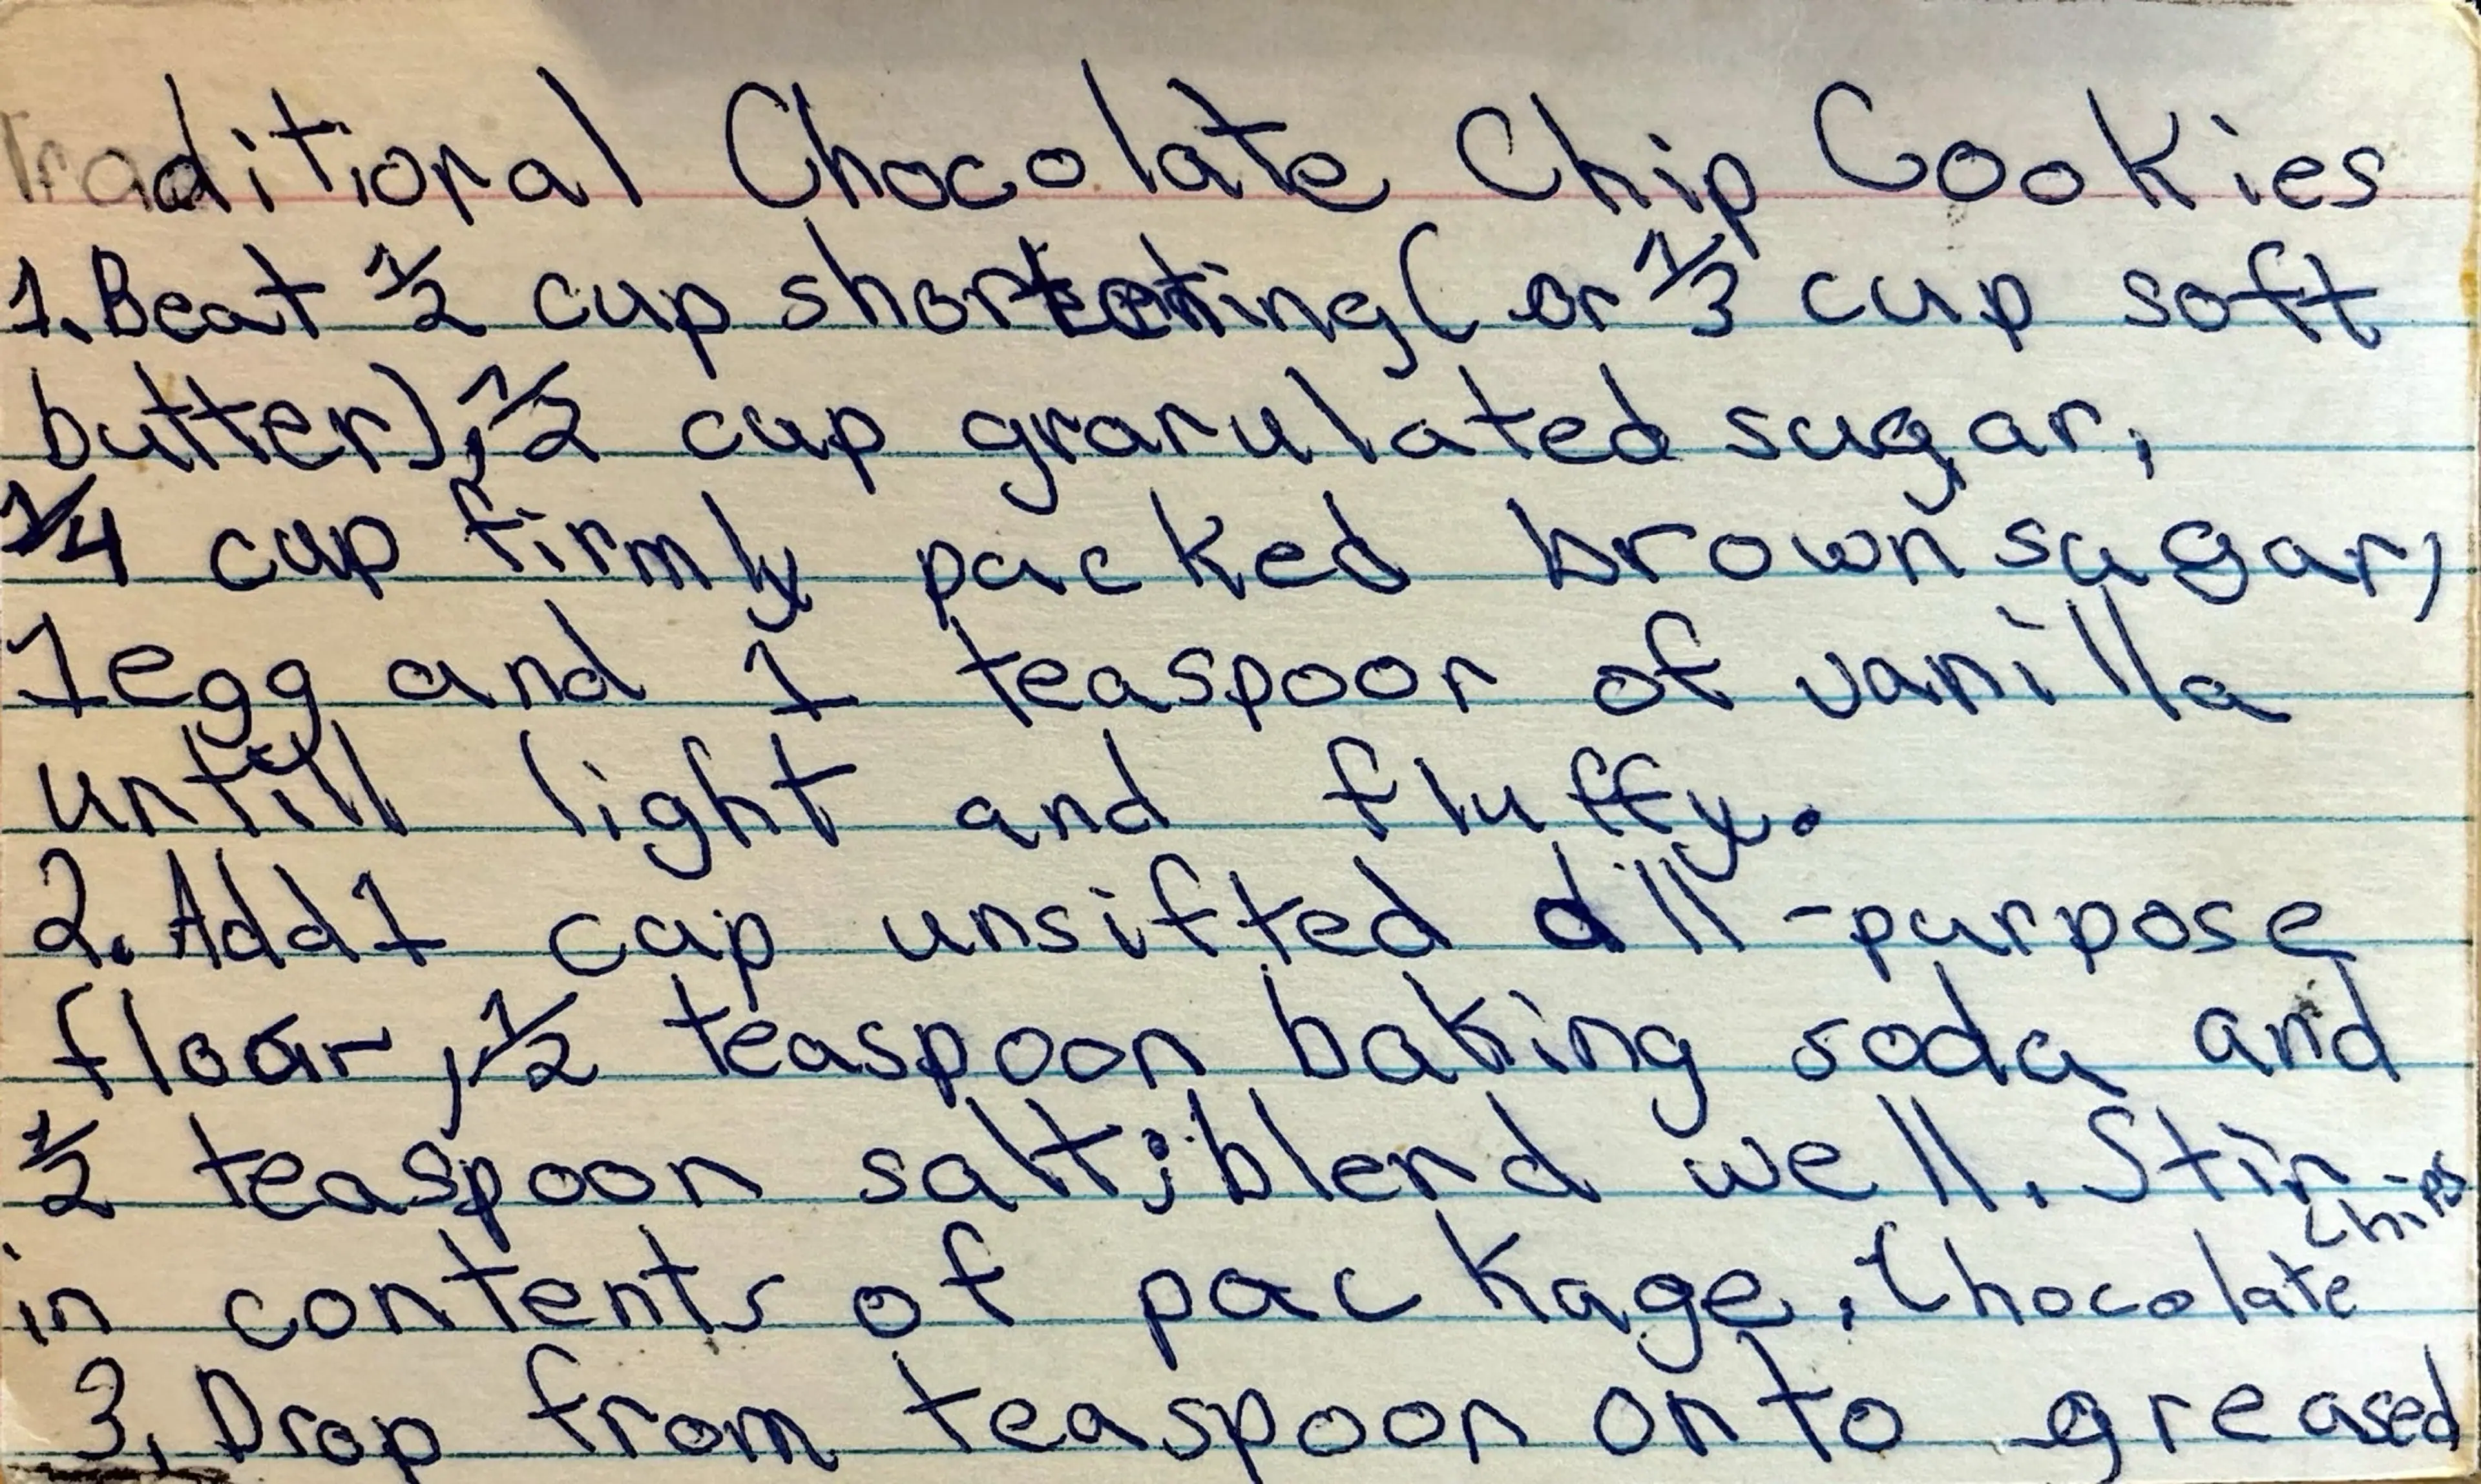 Traditional Chocolate Chip Cookies
1. Beat 1/2 cup shortening (or 1/3 cup soft
butter), 1/2 cup granulated sugar,
1/4 cup firmly packed brown sugar,
1 egg and 1 teaspoon of vanilla
untill light and fluffy.
2. Add 1 cup unsifted all-purpose
flour, 1/2 teaspoon baking soda and
1/2 teaspoon salt; blend well. Stir
in contents of package. Chocolate chips
3. Drop from teaspoon onto greased